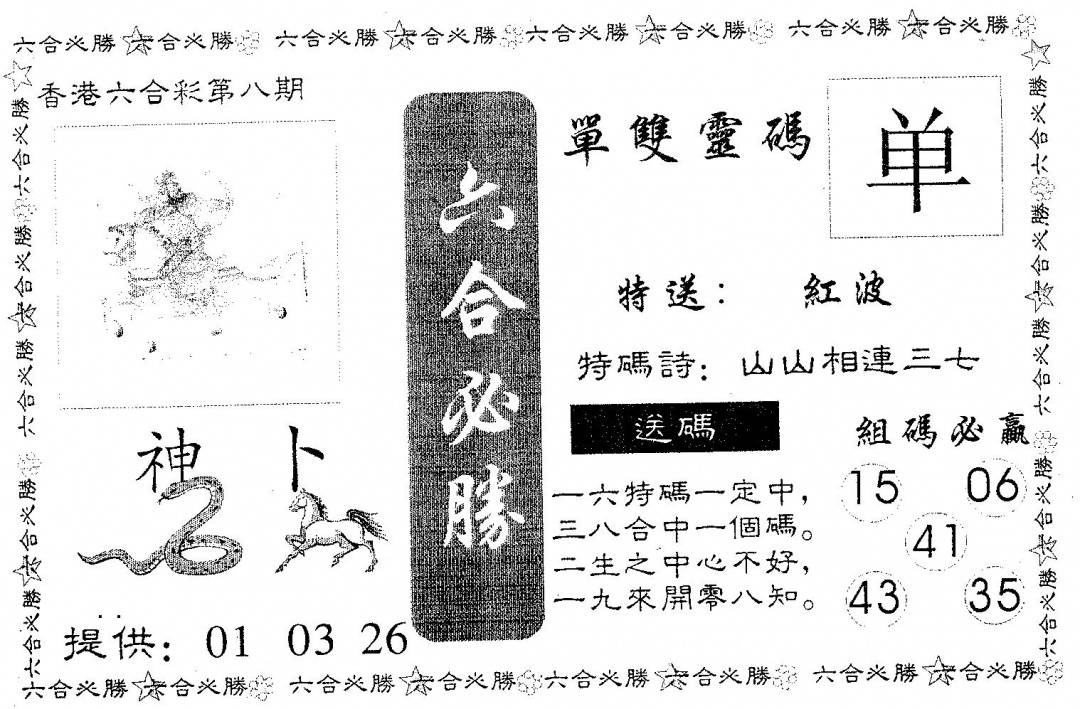 六合必勝 六合必勝 六合必勝 六合必勝 六合必勝 六合必勝 六合必勝 六合必勝
香港六合彩第八期
神 卜
提供: 01 03 26
六合必勝
單雙靈碼
单
特送: 紅波
特碼詩: 山山相連三七
送碼
一六特碼一定中,
三八合中一個碼。
二生之中心不好,
一九來開零八知。
組碼必贏
15 06
41
43 35
六合必勝 六合必勝 六合必勝 六合必勝 六合必勝
六合必勝 六合必勝 六合必勝 六合必勝 六合必勝
六合必勝 六合必勝 六合必勝 六合必勝 六合必勝 六合必勝 六合必勝 六合必勝